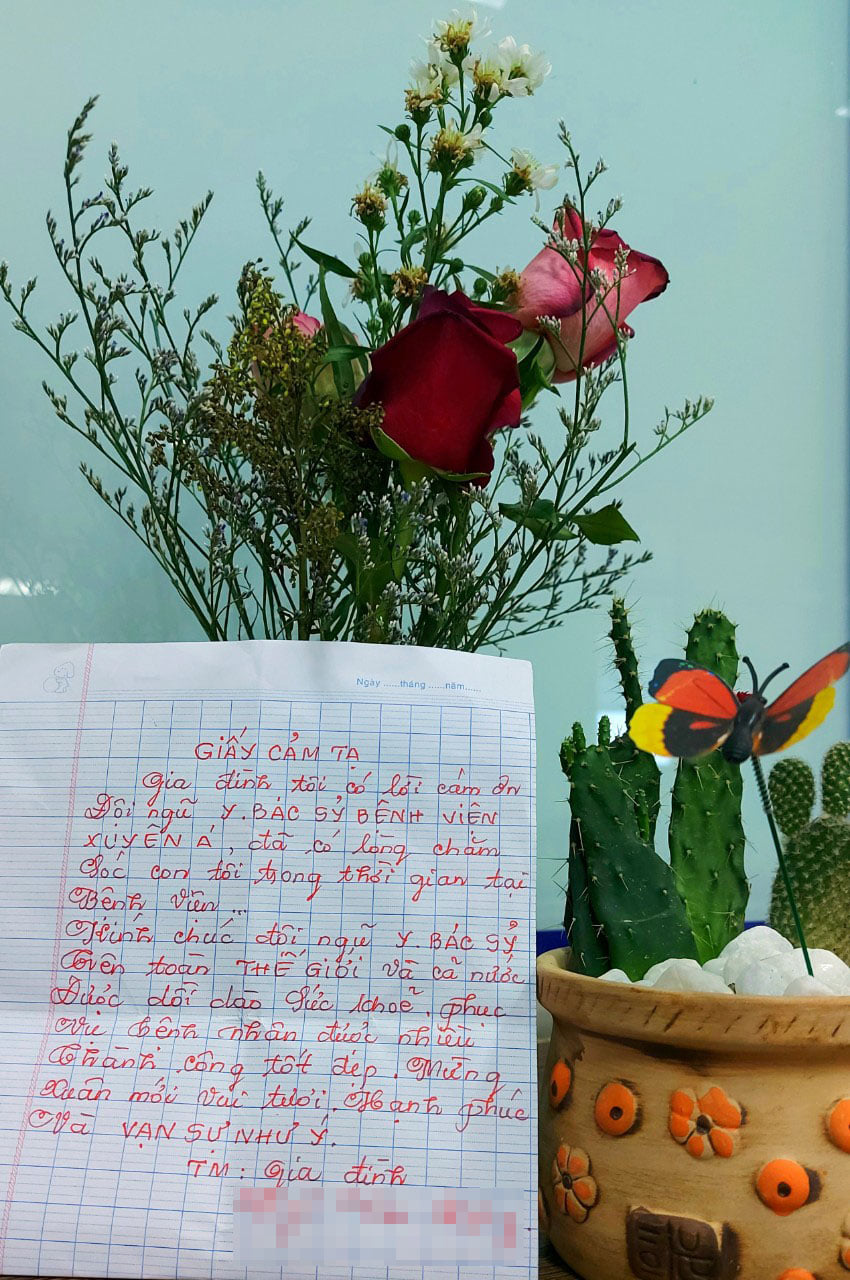 Ngày ......tháng ......năm......
GIẤY CẢM TẠ
Gia đình tôi có lời cảm ơn
Đội ngũ Y.BÁC SỶ BỆNH VIÊN
XUYÊN Á, đã có lòng chăm
Sóc con tôi trong thời gian tại
Bệnh Viên ...
Kính chúc đội ngũ Y.BÁC SỶ
Trên toàn THẾ Giới và cả nước
Được dồi dào Sức khoẽ. phục
Vụ bệnh nhân được nhiều
Thành công tốt đẹp. Mừng
Xuân mới vui tươi. Hạnh phúc
Và VẠN SỰ NHƯ Ý.
TM: Gia đình